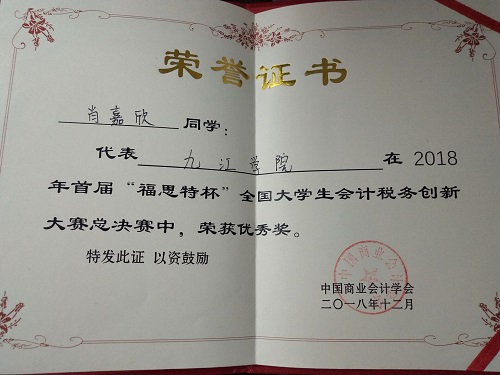 荣誉证书
肖嘉欣 同学：
代表 九江学院 在 2018
年首届“福思特杯”全国大学生会计税务创新
大赛总决赛中，荣获优秀奖。
特发此证 以资鼓励
中国商业会计学会
二〇一八年十二月